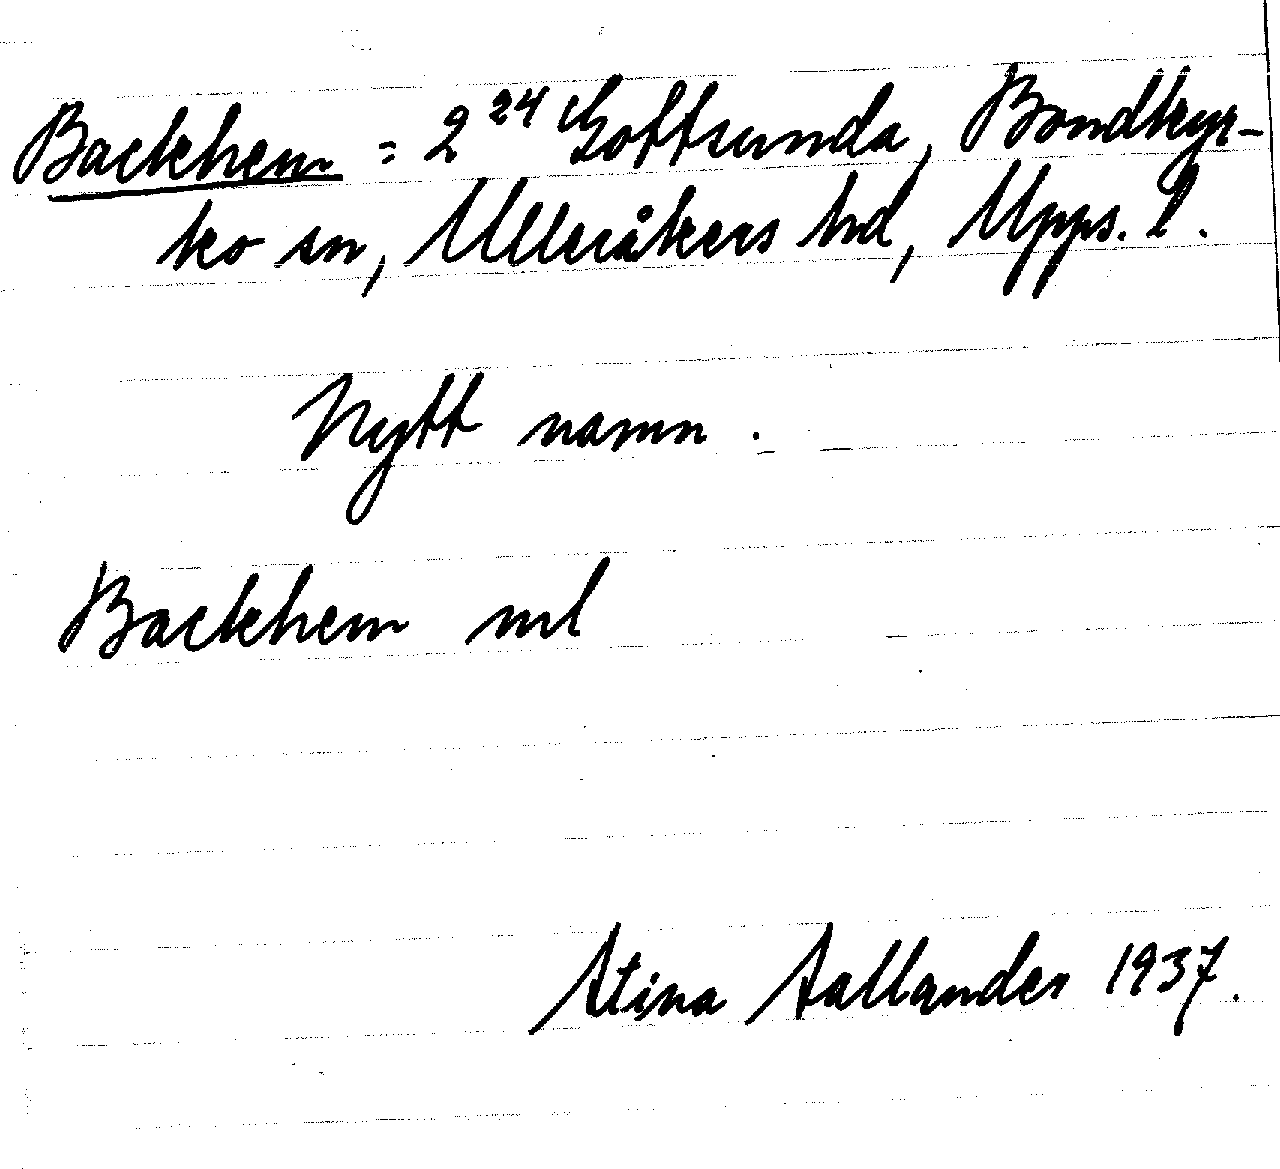 Backhem = 2²⁴ Gottsunda, Bondkyr-
ko sn, Ulleråkers hd, Upps. l.
Nytt namn.
Backhem ml
Stina Sallander 1937.